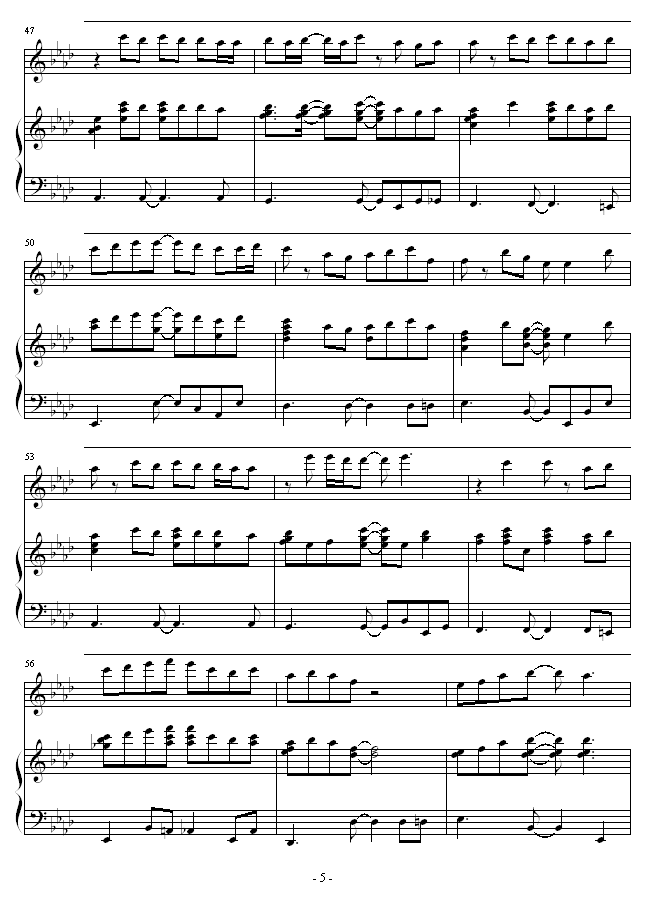 47
50
53
56
- 5 -